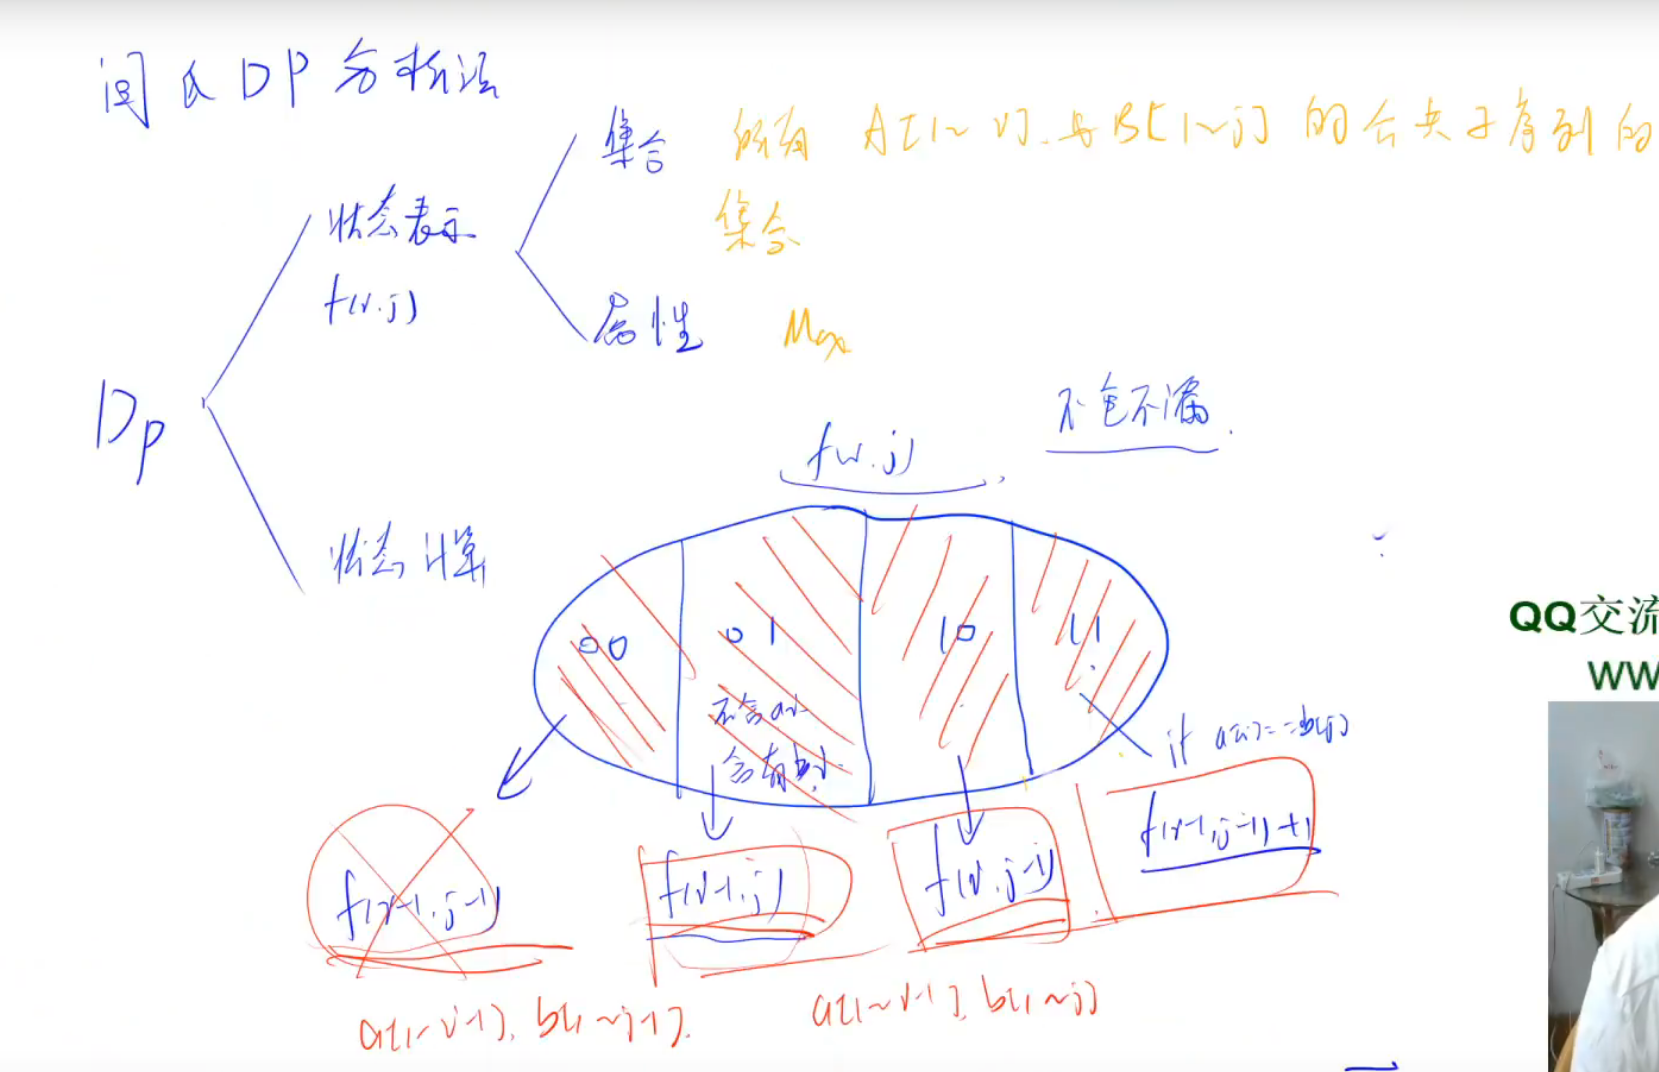 闫氏DP分析法
集合 所有 A[1~i] 与 B[1~j] 的公共子序列的
集合
状态表示
f(i,j)
属性 Max
DP
不包不漏
f(i,j)
状态计算
QQ交流
WW
00 01 10 11
不含ai
含有bj
if a[i]==b[j]
f(i-1,j-1)+1
f(i-1,j-1) f(i-1,j) f(i,j-1)
a[1~i-1], b[1~j-1]. a[1~i-1], b[1~j]